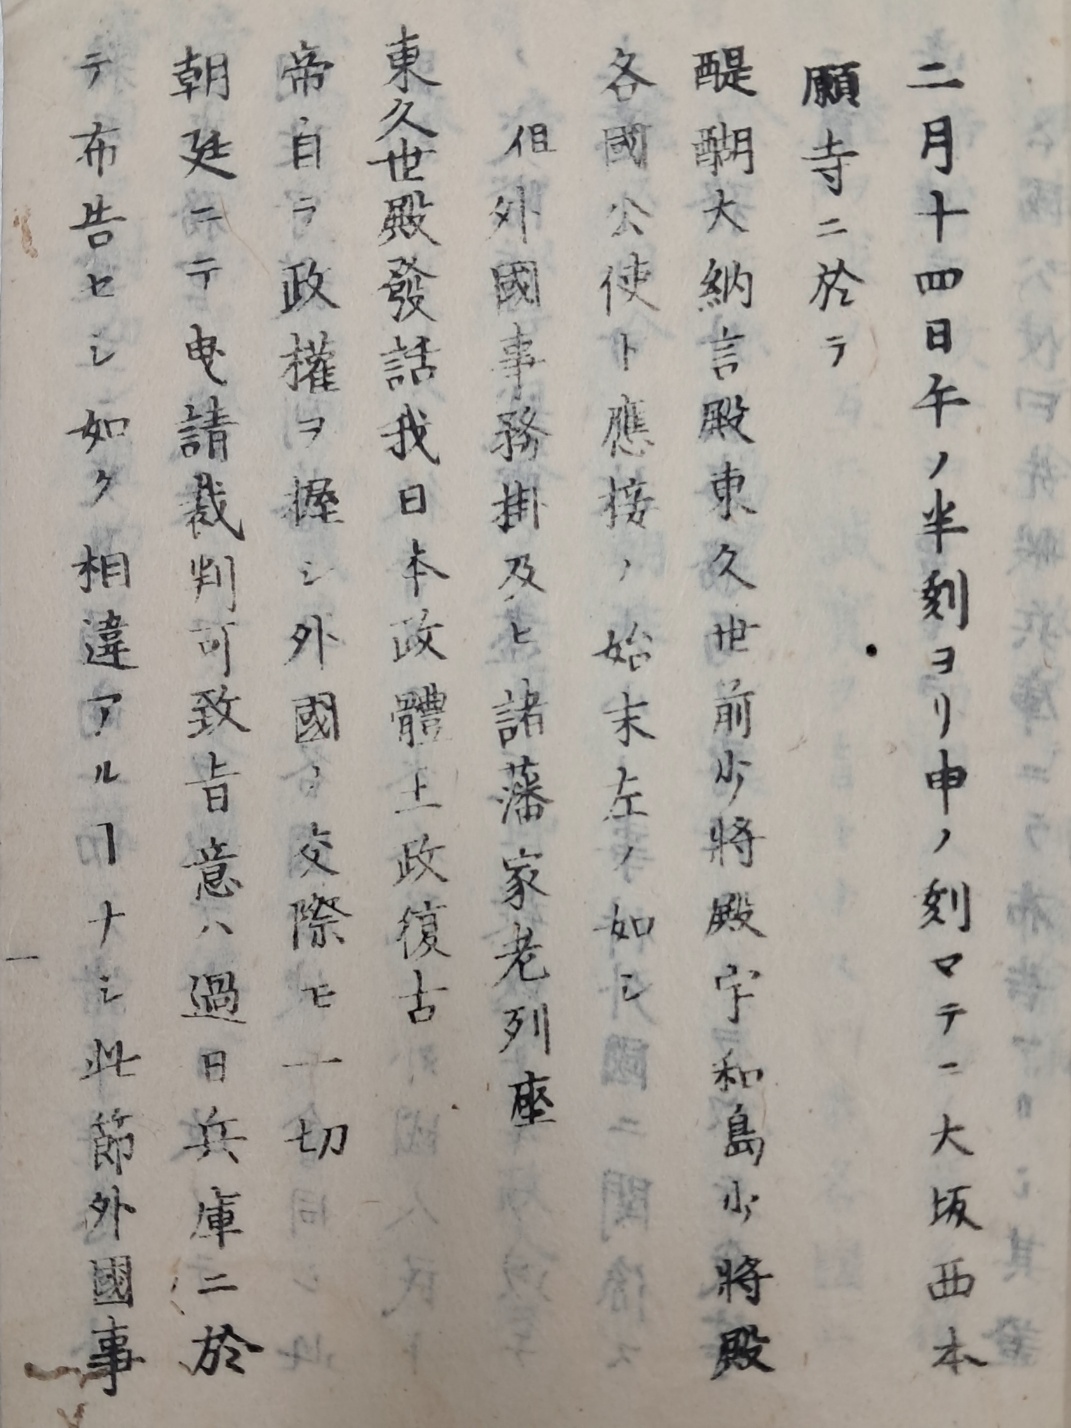 二月十四日午ノ半刻ヨリ申ノ刻マテニ大坂西本
願寺ニ於テ
醍醐大納言殿東久世前少將殿宇和島少將殿
各國公使ト應接ノ始末左ノ如シ
但外國事務掛及ヒ諸藩家老列座
東久世殿發話我日本政體王政復古
帝自ラ政權ヲ握シ外國ノ交際モ一切
朝廷ニテ曳請裁判可致旨意ハ過日兵庫ニ於
テ布告セシ如ク相違アルヿナシ此節外國事